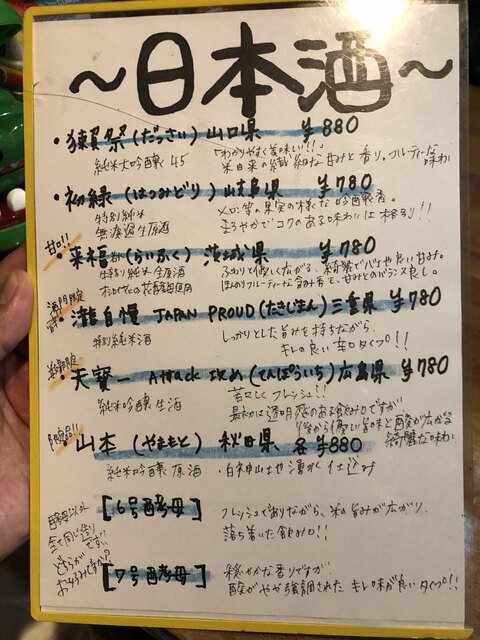 〜日本酒〜
・獺祭（だっさい）山口県 ¥880
純米大吟醸 45
「わかりやすく美味しい!!」
米由来の繊細な甘みと香り。フルーティーな味わい
・初緑（はつみどり）岐阜県 ¥780
特別純米
無濾過生原酒
メロン等の果実の様な吟醸香。
まろやかでコクのある味わいは格別!!
甘口!!
・来福（らいふく）茨城県 ¥780
特別純米 生原酒
の花酵母使用
ふわりと優しく広がる、綺麗で な良い甘み。
ほんのりフルーティーな含み香を、甘みとのバランス良し。
専門店限定
・瀧自慢 JAPAN PROUD（たきじまん）三重県 ¥780
特別純米酒
しっかりとした旨みを持ちながら、
キレの良い辛口タイプ!!
期間限定
・天寶一 Attack 攻め（てんぽういち）広島県 ¥780
純米吟醸 生酒
若々しくフレッシュ!!
最初は透明感のある飲み口ですが
後から優しい旨味と酸が広がる
綺麗な味わい
限定品!!
・山本（やまもと）秋田県 各¥880
純米吟醸 原酒
・白神山地 湧水 仕込み
酵母以外
全て同じ造り
です!!
どちらが
お好みですか?
［6号酵母］
フレッシュでありながら、米の旨みが広がり、
落ち着いた飲み口!!
［7号酵母］
穏やかな香りですが
酸がやや強調された キレ味が良いタイプ!!